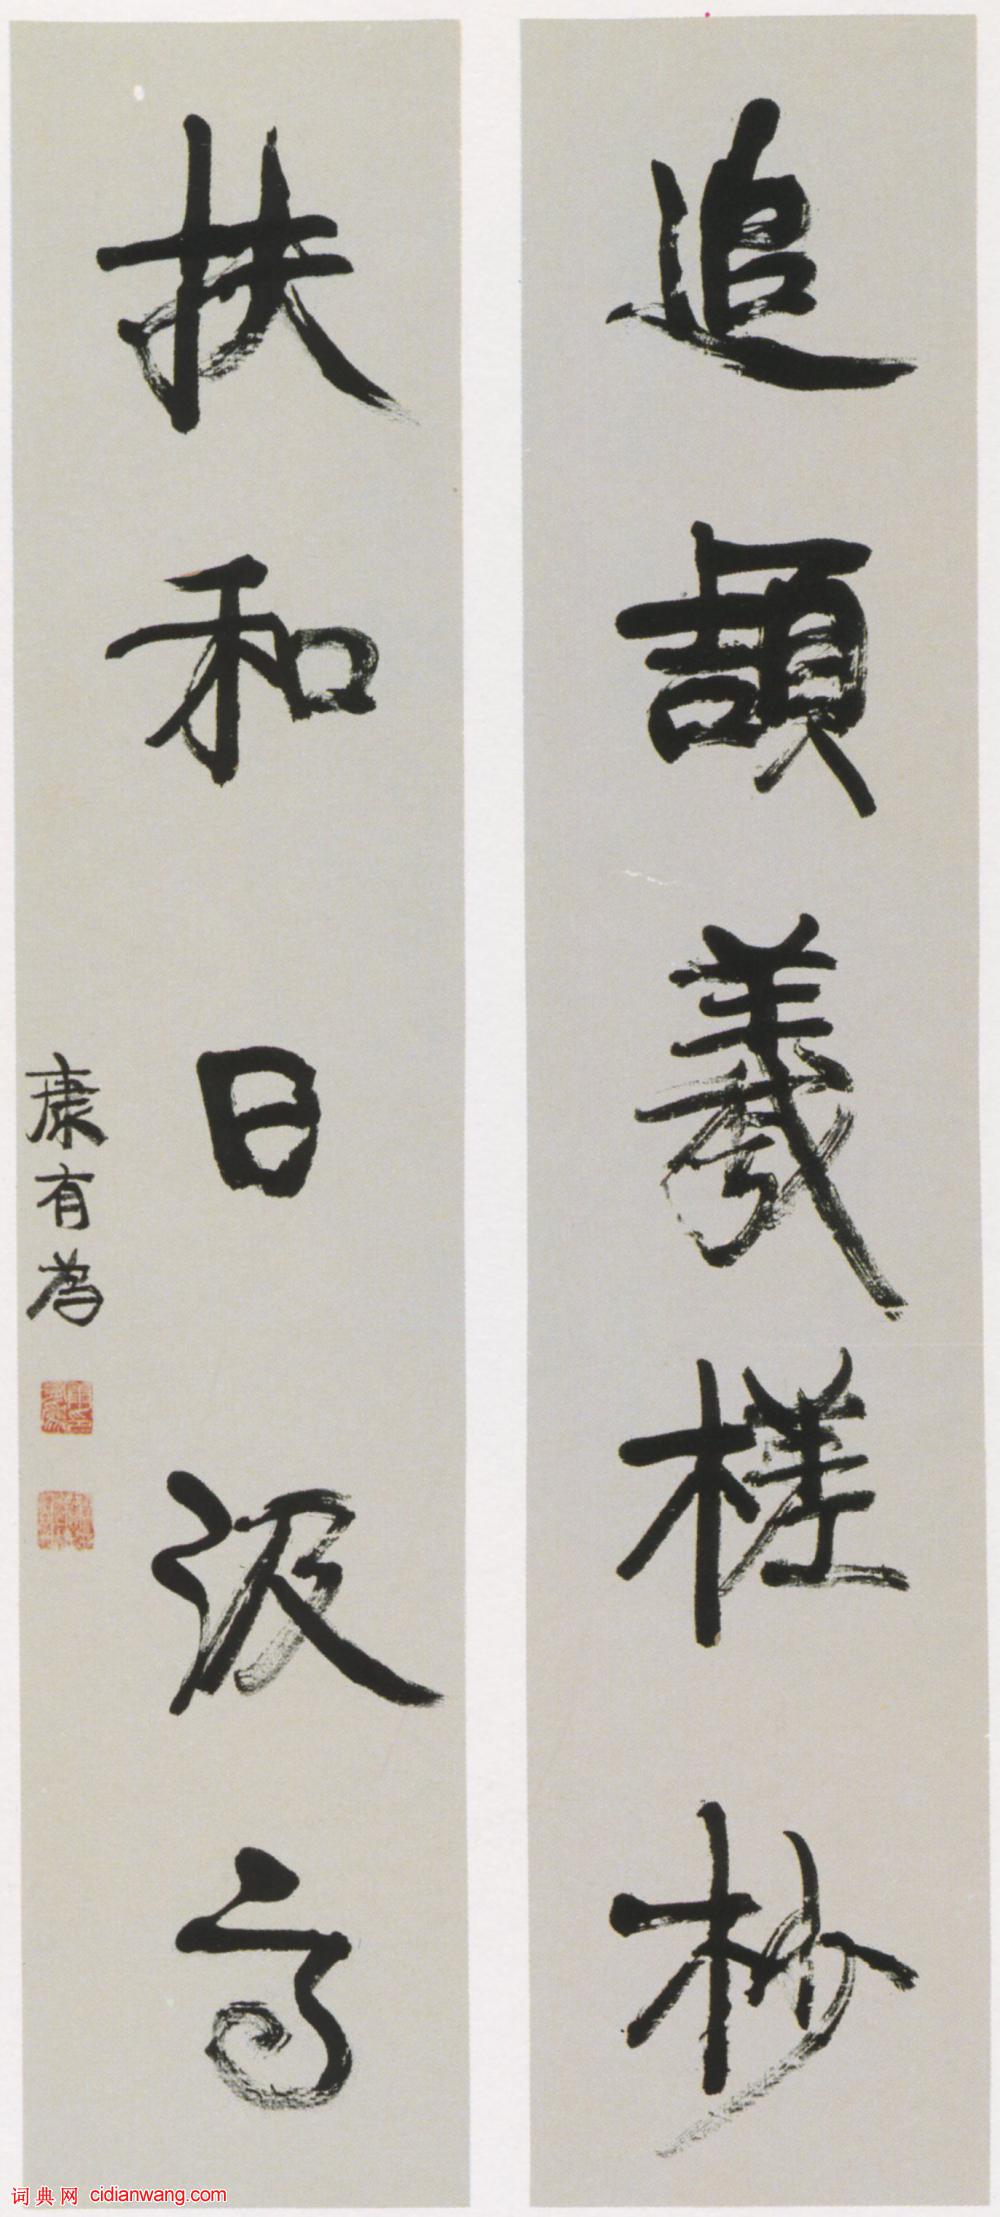 追頡羲槎杪
扶和日汲高
康有為
词典网 cidianwang.com